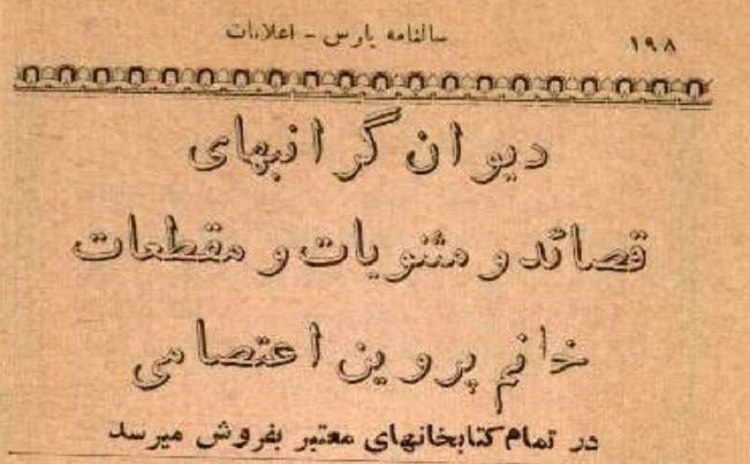 ۱۹۸ سالنامه پارس - اعلانات
دیوان گرانبهای
قصائد و مثنویات و مقطعات
خانم پروین اعتصامی
در تمام کتابخانهای معتبر بفروش میرسد